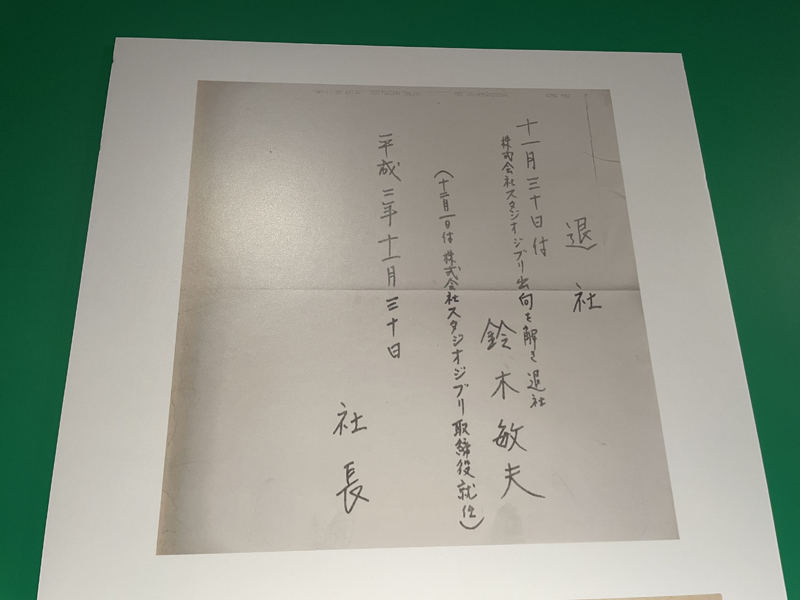 退社
十一月三十日付
株式会社スタジオジブリ出向を解き退社
鈴木敏夫
(十二月一日付株式会社スタジオジブリ取締役就任)
平成二年十一月三十日
社長